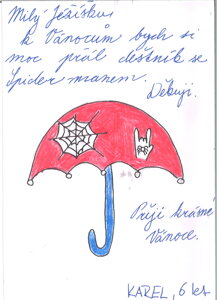 Milý Ježíšku
k Vánocům bych si
moc přál deštník se
Spider manem.
Děkuji.
Přeji krásné
Vánoce.
KAREL, 6 let